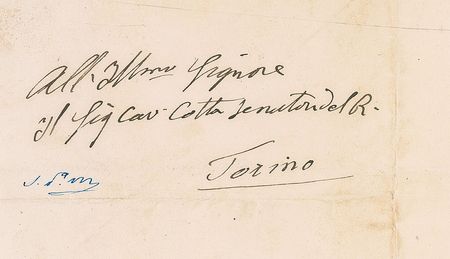 All. Illmo Signore
Il Sig Cav. Cotta Senatore del R.
Torino